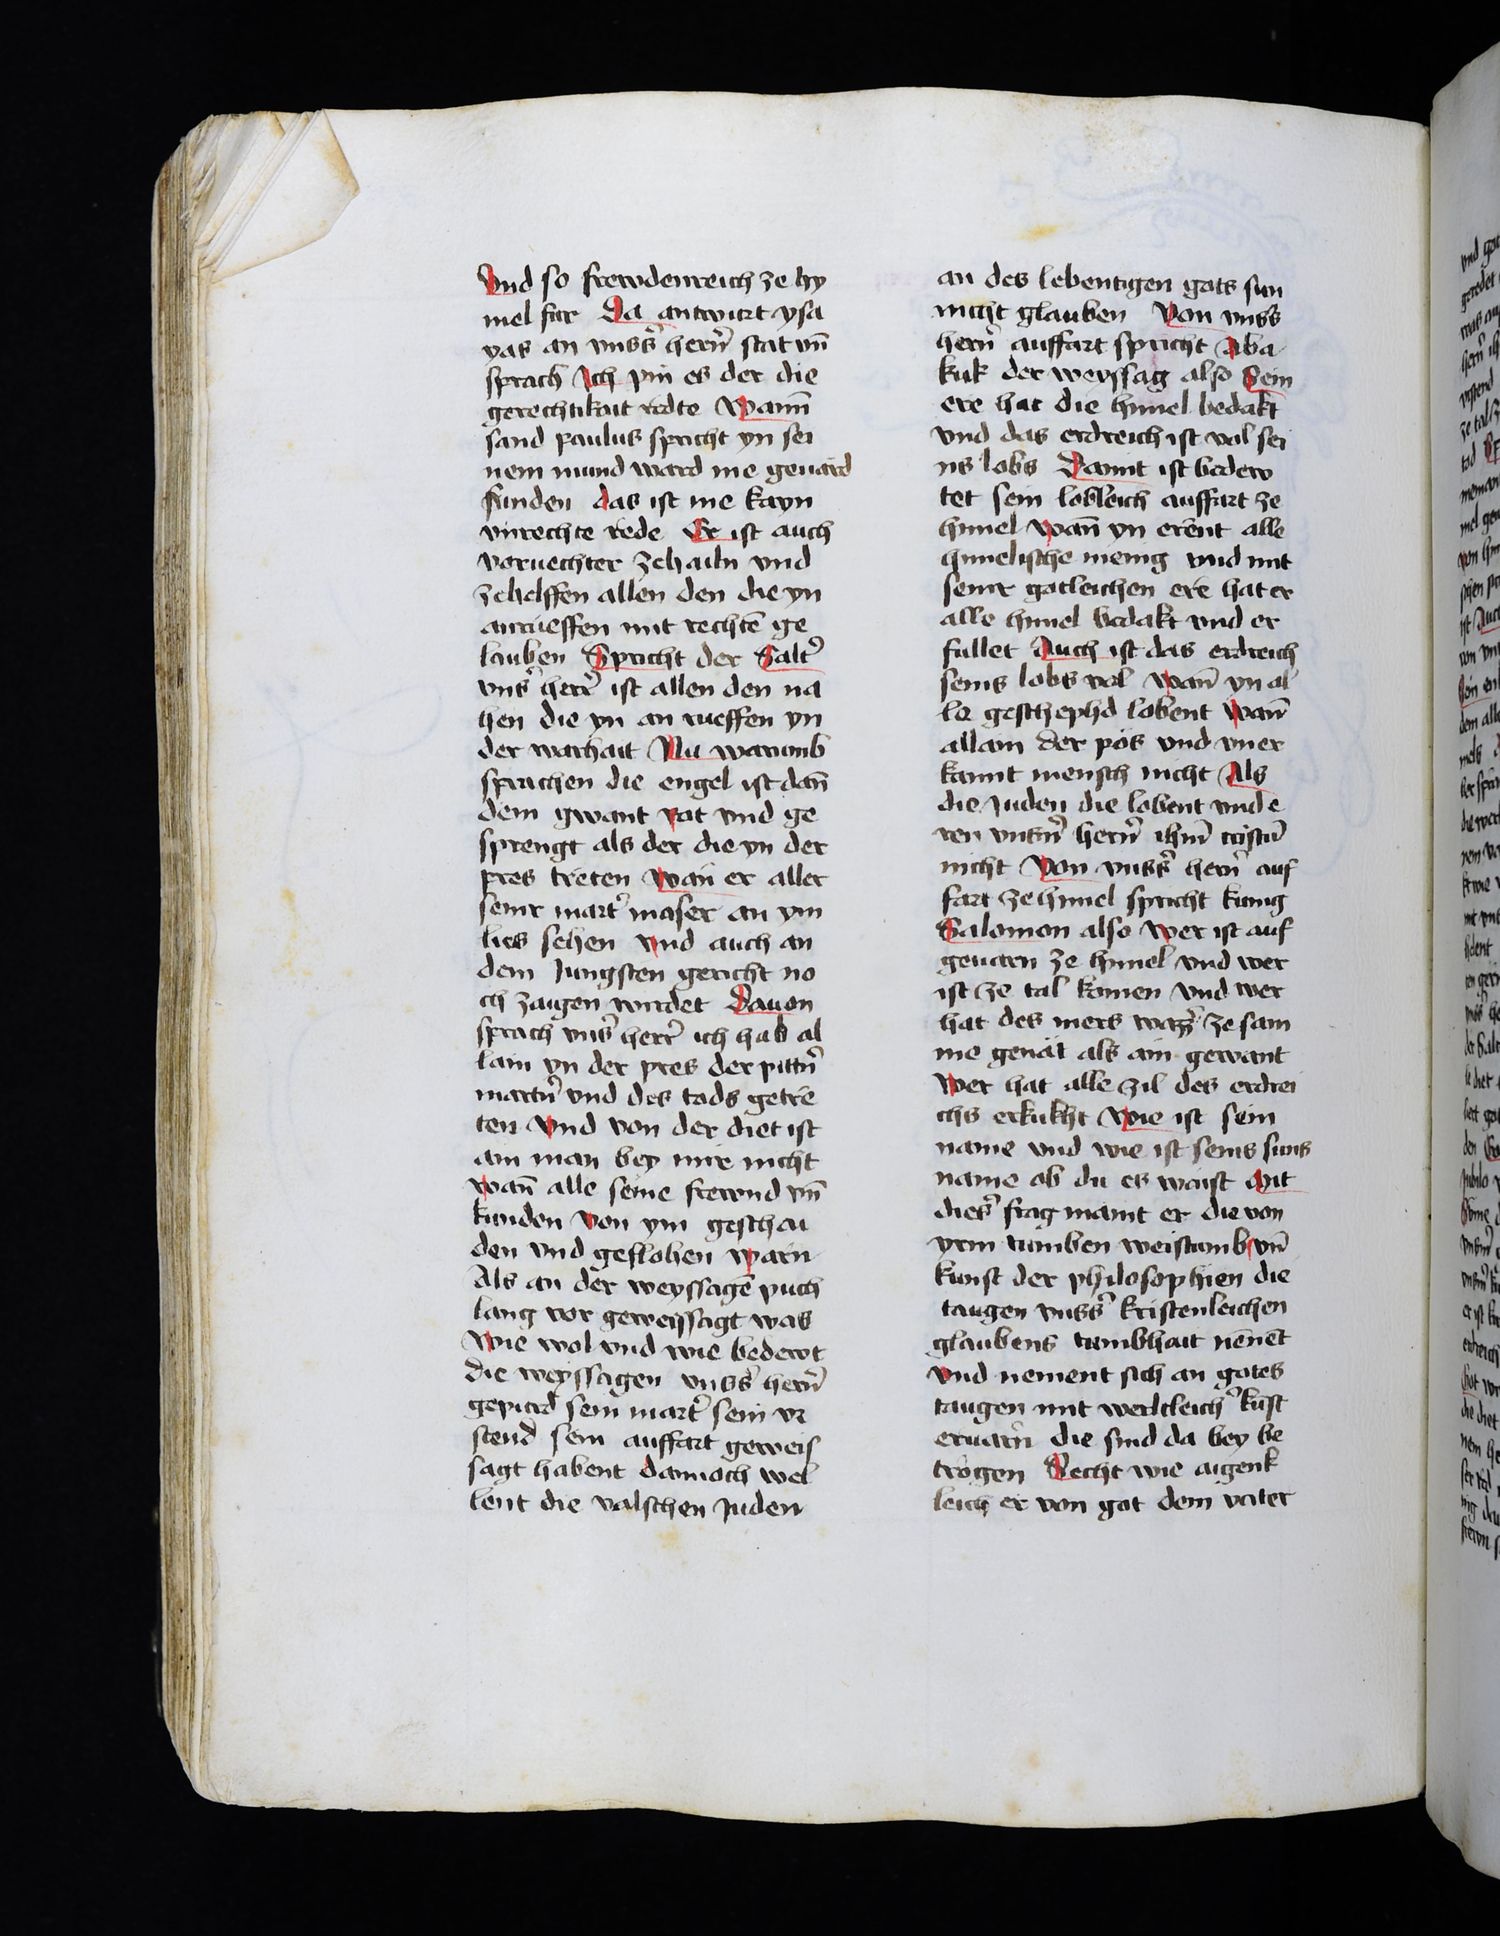 Vnd so frewdenreich ze hy
mel fur Da antwurt ysa
yas an vnsß hern̄ stat vn̄
sprach Ich pin es der die
gerechtikait redte Wann̄
sand paulus spricht yn sei
nem mund ward nie gevard
funden das ist nie kayn
vnrechte rede Er ist auch
vorvechter ze hailn vnd
ze helffen allen den die yn
anrueffen mit rechtē ge
lauben Spricht der Salt̉
vns̉ herr̄ ist allen den na
hen die yn an rueffen yn
der warhait Nu warumb
sprachen die engel ist dan̄
dem gwant rat vnd ge
sprengt als der die yn der
pres treten Wan̄ er aller
seinr mart̉ maser an ym
lies sehen vnd auch an
dem Jungsten gericht no
ch zaigen wirdet Dauon
sprach vns̉ herr̄ ich hab al
lain yn der pres der pittn̉
martn̉ vnd des tods getre
ten Vnd von der diet ist
ain man bey mir nicht
Wan̄ alle seine frewnd vn̄
kunden Von ym geschai
den vnd geflohen warn
Als an der weyssagē puch
lang vor geweissagt was
Wie wol vnd wie bedewt
die weyssagen vnsß hern̄
gepurd sein mart̉ sein vr
stend sein auffart geweis
sagt habent dannoch wel
lent die valschen Juden
an des lebentigen gots sun
nicht glauben Von vnsß
hern̄ auffart spricht Aba
kuk der weyssag also Sein
ere hat die himel bedakt
vnd das erdreich ist vol sei
ns lobs Damit ist bedew
tet sein lobleich auffart ze
himel Wan̄ yn erent alle
himelische menig vnd mit
seinr gotleichen ere hat er
alle himel bedakt vnd er
fullet Auch ist das erdreich
seins lobs vol Wan̄ yn al
le geschephd lobent Wan̄
allain der pös vnd vner
kannt mensch nicht Als
die Juden die lobent vnd e
ren vnsn̉ hern̄ ihm̄ cristū
nicht Von vnsß hern̄ auf
fart ze himel spricht kunig
Salomon also Wer ist auf
gevarn ze himel vnd wer
ist ze tal komen vnd wer
hat des mers wazz̉ ze sam
me genät als ain gewant
Wer hat alle zil des erdrei
chs erkukht Wie ist sein
name vnd wie ist seins suns
name ob du es waist Mit
dies̉ frag maint er die von
yrm tumben weistumb vn̄
kunst der philosophien die
taugen vnsß kristenleichen
glaubens tumbhait nēnēt
Vnd nement sich an gotes
taugen mit werltleich̉ kunst
ervarn̄ die sind da bey be
trogen Recht wie aigenk
leich er von got dem vater